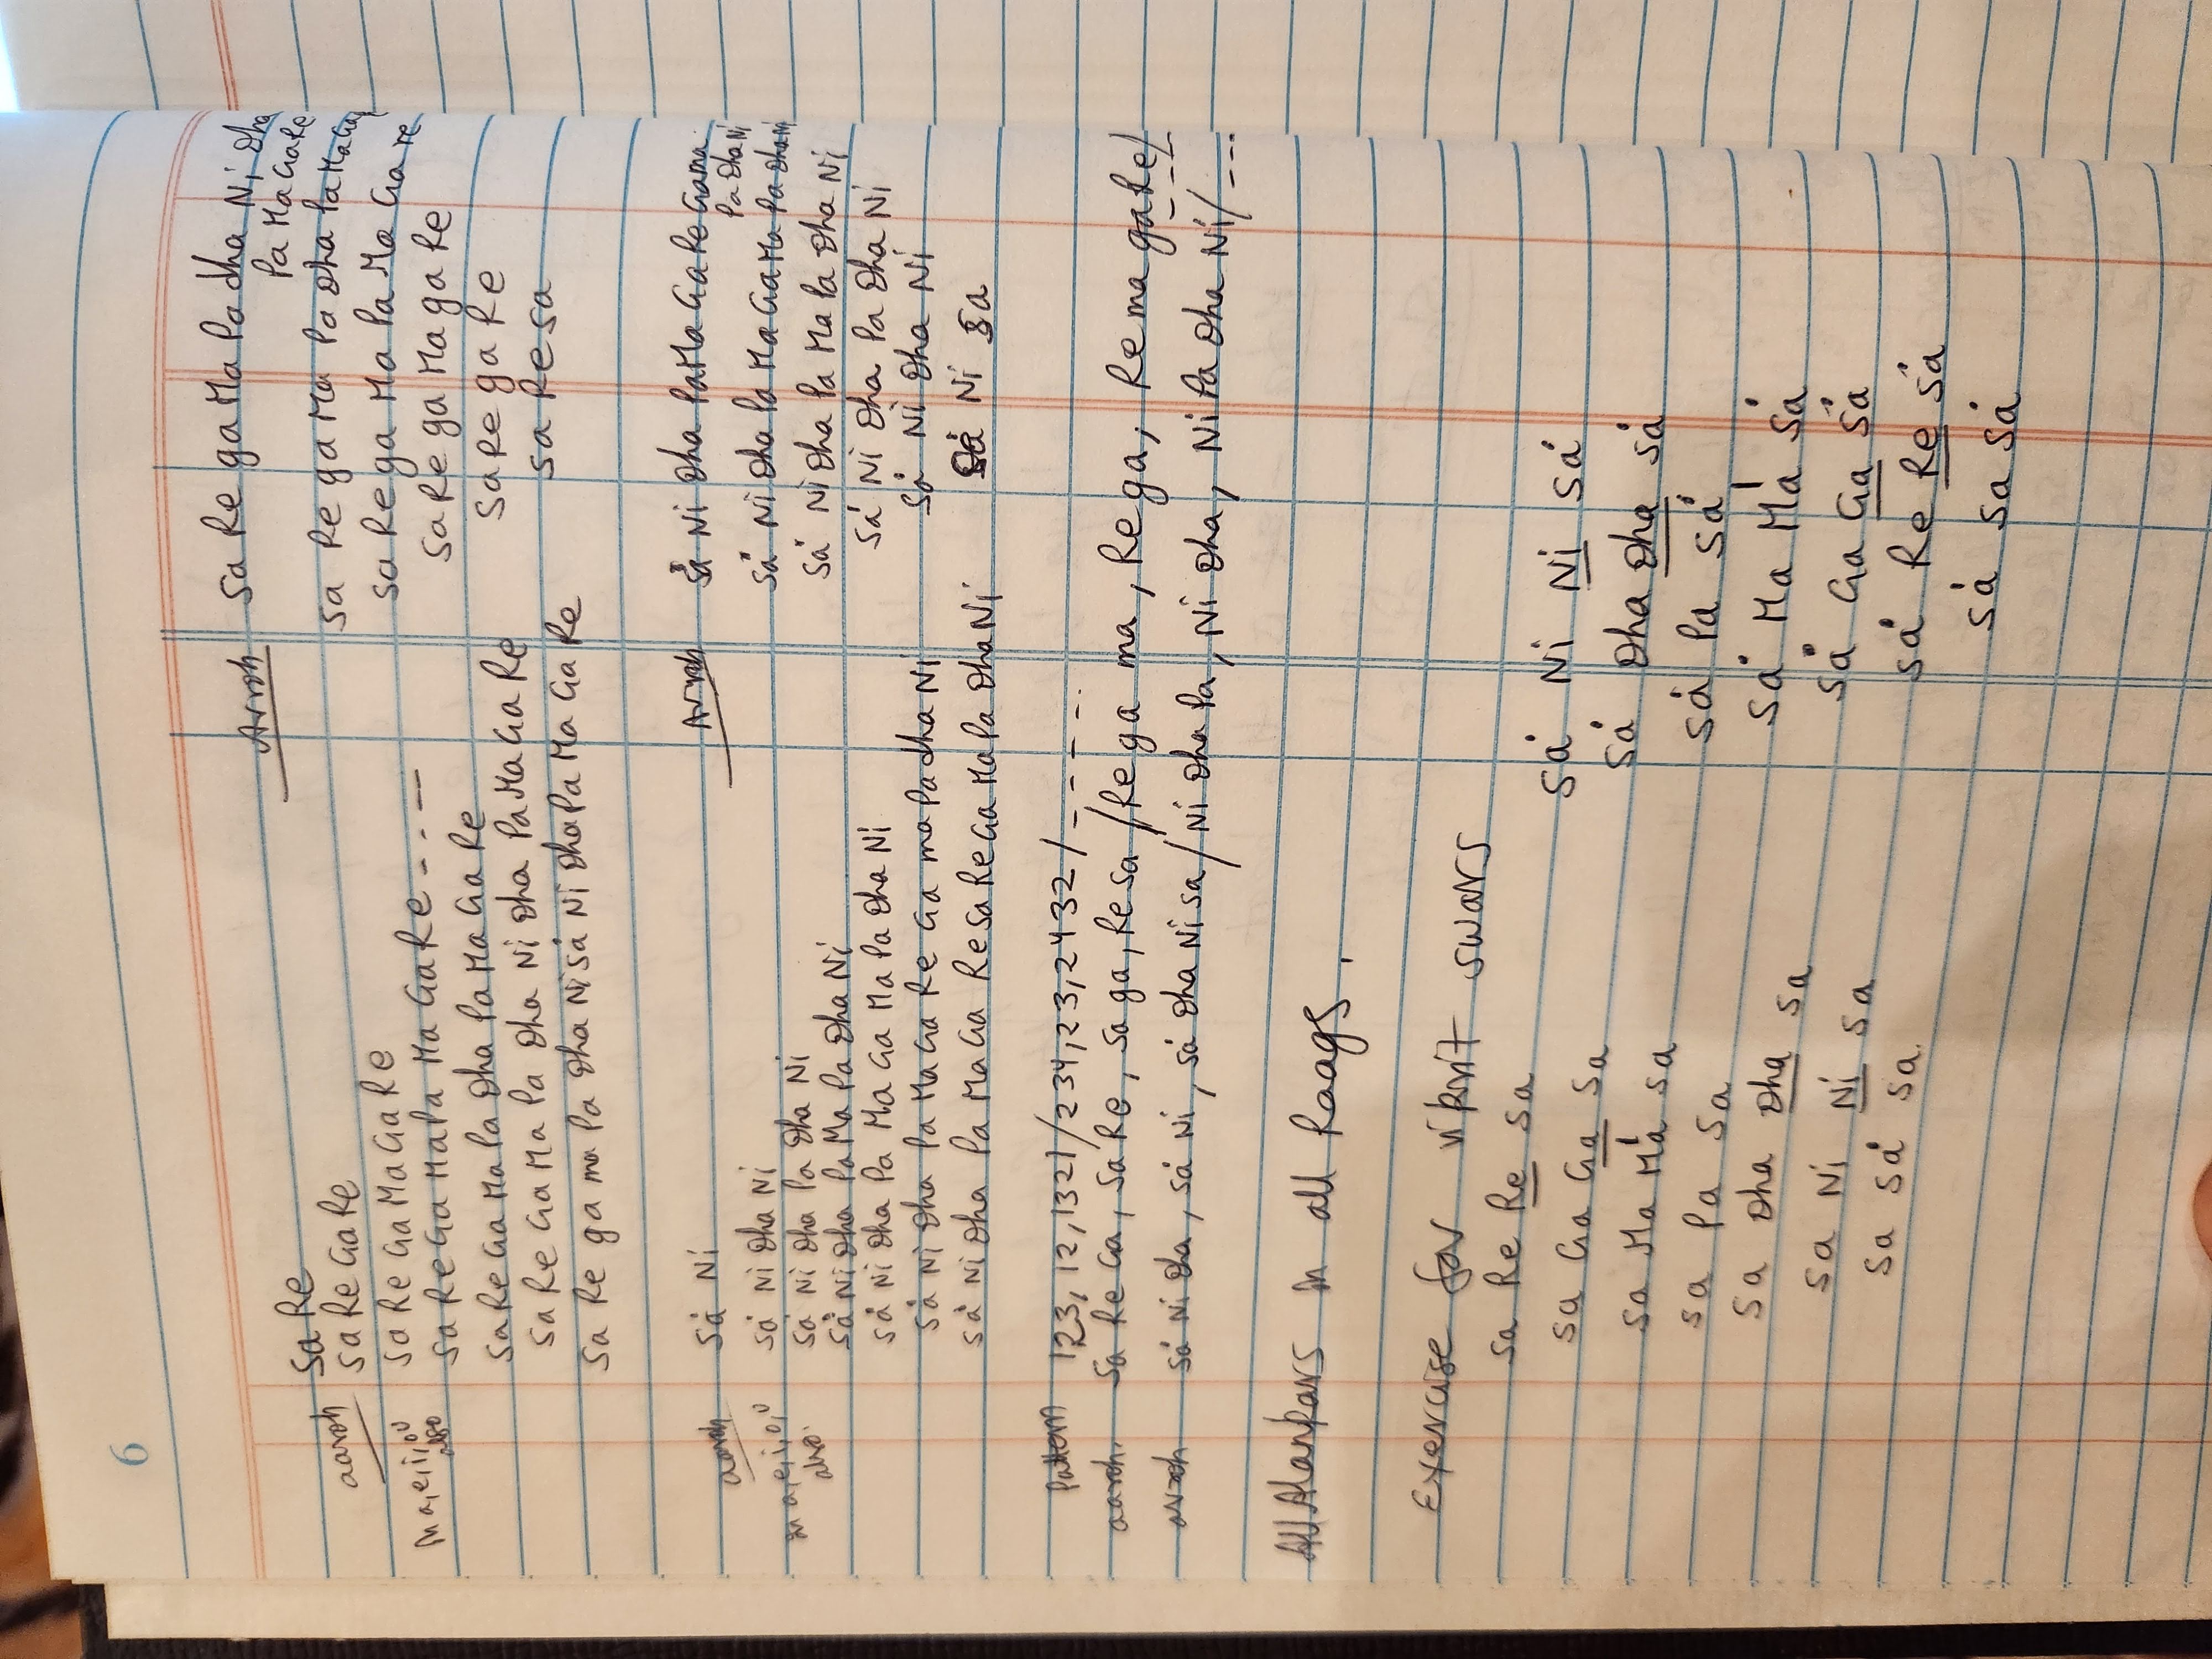 6
aaroh
In a,e,i,o,u
also
Sa Re
Sa Re Ga Re
Sa Re Ga Ma Ga Re
Sa Re Ga Ma Pa Ma Ga Re - - - -
Sa Re Ga Ma Pa Dha Pa Ma Ga Re
Sa Re Ga Ma Pa Dha Ni Dha Pa Ma Ga Re
Sa Re ga ma Pa Dha Ni Sȧ Ni Dha Pa Ma Ga Re
Avroh
Sa Re ga Ma Pa dha Ni Dha
Pa Ma Ga Re
Sa Re ga Ma Pa Dha Pa Ma Ga
Sa Re ga Ma Pa Ma Ga re
Sa Re ga Ma ga Re
Sa Re ga Re
Sa Re Sa
aaroh
In a,e,i,o,u
also.
Sȧ Ni
Sȧ Ni Dha Ni
Sȧ Ni Dha Pa Dha Ni
Sȧ Ni Dha Pa Ma Pa Dha Ni
Sȧ Ni Dha Pa Ma Ga Ma Pa Dha Ni
Sȧ Ni Dha Pa Ma Ga Re Ga ma Pa dha Ni
Sȧ Ni Dha Pa Ma Ga Re Sa Re Ga Ma Pa Dha Ni
Avroh
Sȧ Ni Dha Pa Ma Ga Re Ga ma
Pa Dha Ni
Sȧ Ni Dha Pa Ma Ga Ma Pa Dha Ni
Sȧ Ni Dha Pa Ma Pa Dha Ni
Sȧ Ni Dha Pa Dha Ni
Sȧ Ni Dha Ni
Sȧ Ni Sa
Pattern 123, 12, 1321 / 234, 23, 2432 / - - - - -.
aaroh. Sa Re Ga, Sa Re, Sa ga, Re Sa / Re ga ma, Re ga, Re ma ga Re / - - -
avroh Sȧ Ni Dha, Sȧ Ni, Sȧ Dha Ni Sa / Ni Dha Pa, Ni Dha, Ni Pa Dha Ni / - - -
All Alankars in all Raags.
Exercise for vikrit swars
Sa Re R̲e̲ Sa
Sa Ga G̲a̲ Sa
Sa Ma Ma̍ Sa
Sa Pa Sa
Sa Dha D̲h̲a̲ Sa
Sa Ni N̲i̲ Sa
Sa Sȧ Sa.
Sȧ Ni N̲i̲ Sȧ
Sȧ Dha D̲h̲a̲ Sȧ
Sȧ Pa Sȧ
Sȧ Ma Ma̍ Sȧ
Sȧ Ga G̲a̲ Sȧ
Sȧ Re R̲e̲ Sȧ
Sȧ Sa Sȧ